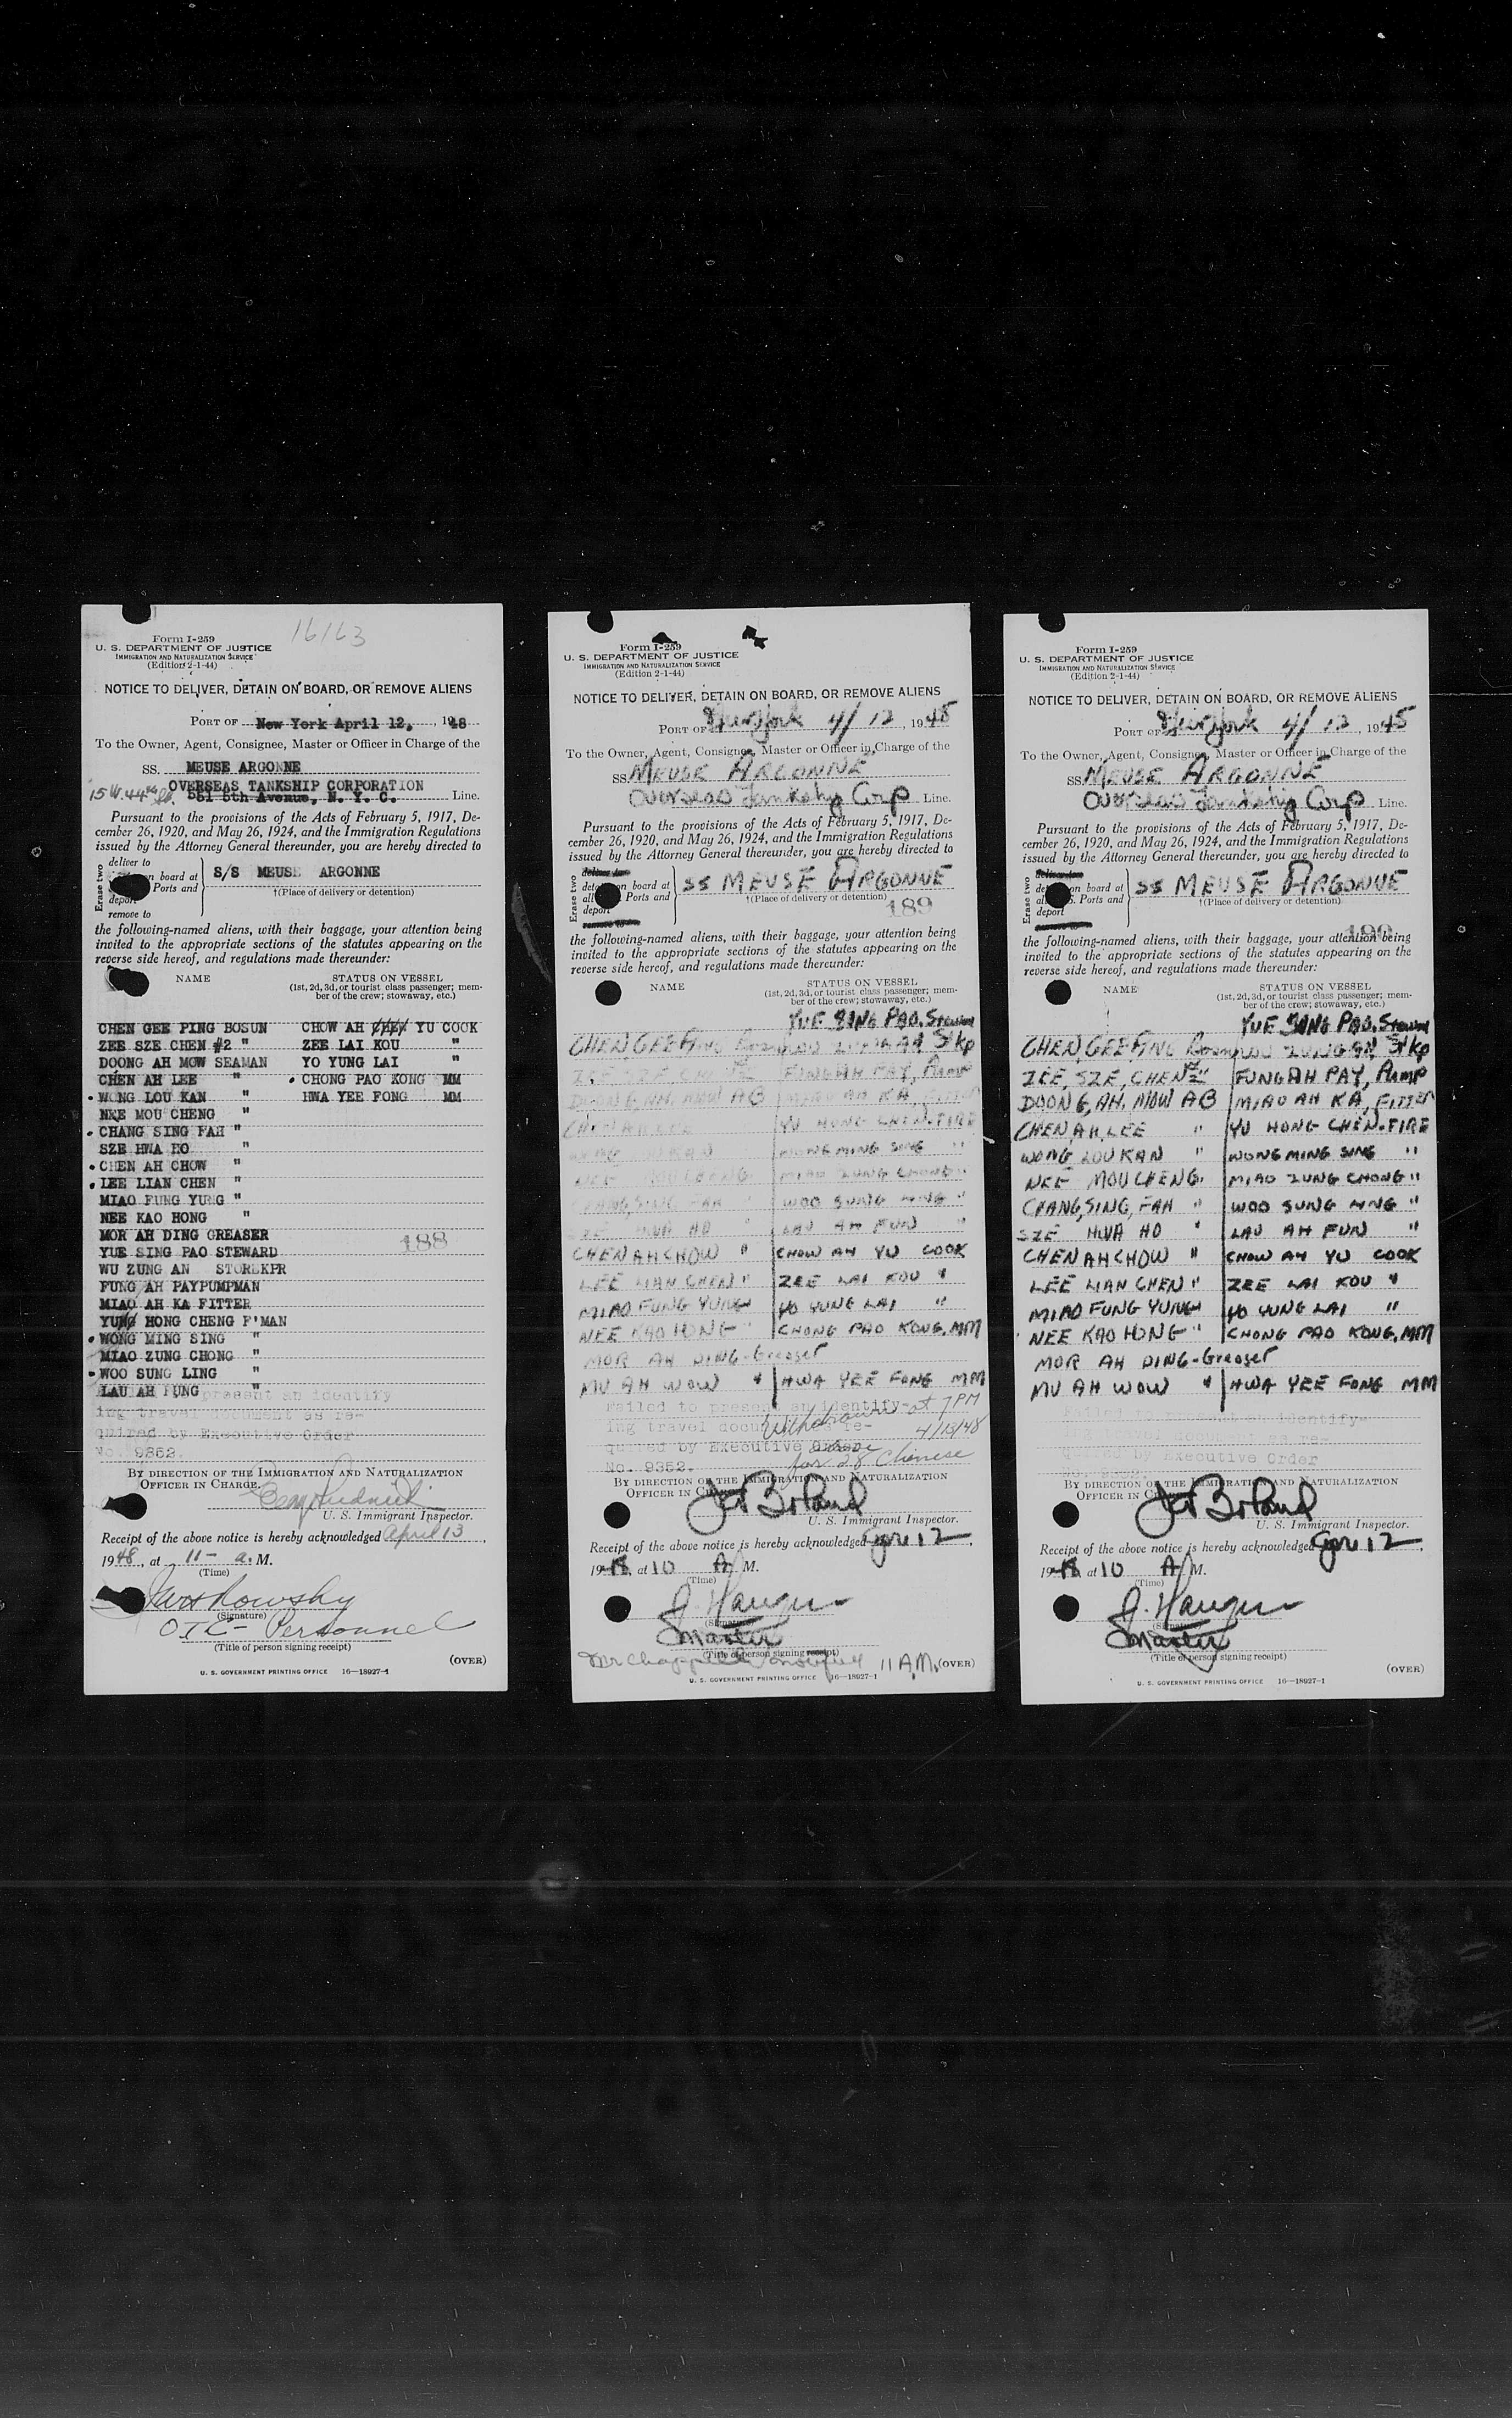 16163
Form I-259
U. S. DEPARTMENT OF JUSTICE
IMMIGRATION AND NATURALIZATION SERVICE
(Edition 2-1-44)
NOTICE TO DELIVER, DETAIN ON BOARD, OR REMOVE ALIENS
PORT OF New York April 12, , 1948
To the Owner, Agent, Consignee, Master or Officer in Charge of the
SS. MEUSE ARGONNE
OVERSEAS TANKSHIP CORPORATION
15 W. 44th St. 551 5th Avenue, N. Y. C. Line.
Pursuant to the provisions of the Acts of February 5, 1917, De-
cember 26, 1920, and May 26, 1924, and the Immigration Regulations
issued by the Attorney General thereunder, you are hereby directed to
Erase two
deliver to
on board at
Ports and
deport
remove to
S/S MEUSE ARGONNE
†(Place of delivery or detention)
the following-named aliens, with their baggage, your attention being
invited to the appropriate sections of the statutes appearing on the
reverse side hereof, and regulations made thereunder:
NAME STATUS ON VESSEL
(1st, 2d, 3d, or tourist class passenger; mem-
ber of the crew; stowaway, etc.)
CHEN GEE PING BOSUN CHOW AH YU COOK
ZEE SZE CHEN #2 " ZEE LAI KOU "
DOONG AH MOW SEAMAN YO YUNG LAI "
CHEN AH LEE " CHONG PAO KONG MM
WONG LOU KAN " HWA YEE FONG MM
NEE MOU CHENG "
CHANG SING FAH "
SZE HWA HO "
CHEN AH CHOW "
LEE LIAN CHEN "
MIAO FUNG YUNG "
NEE KAO HONG "
MOR AH DING GREASER
YUE SING PAO STEWARD 188
WU ZUNG AN STOREKPR
FUNG AH PAY PUMPMAN
MIAO AH KA FITTER
YU HONG CHENG F'MAN
WONG MING SING "
MIAO ZUNG CHONG "
WOO SUNG LING "
LAU AH FUNG "
present an identify
ing travel document as re-
quired by Executive Order
No. 9352.
BY DIRECTION OF THE IMMIGRATION AND NATURALIZATION
OFFICER IN CHARGE.
U. S. Immigrant Inspector.
Receipt of the above notice is hereby acknowledged April 13,
1948, at 11- a. M.
(Time)
(Signature)
OTC- Personnel
(Title of person signing receipt)
(OVER)
U. S. GOVERNMENT PRINTING OFFICE 16—18927-1
Form I-259
U. S. DEPARTMENT OF JUSTICE
IMMIGRATION AND NATURALIZATION SERVICE
(Edition 2-1-44)
NOTICE TO DELIVER, DETAIN ON BOARD, OR REMOVE ALIENS
PORT OF New York 4/12, 1948
To the Owner, Agent, Consignee, Master or Officer in Charge of the
SS. MEUSE ARGONNE
Overseas Tankship Corp Line.
Pursuant to the provisions of the Acts of February 5, 1917, De-
cember 26, 1920, and May 26, 1924, and the Immigration Regulations
issued by the Attorney General thereunder, you are hereby directed to
Erase two
on board at
Ports and
deport
SS MEUSE ARGONNE
†(Place of delivery or detention)
189
the following-named aliens, with their baggage, your attention being
invited to the appropriate sections of the statutes appearing on the
reverse side hereof, and regulations made thereunder:
NAME STATUS ON VESSEL
(1st, 2d, 3d, or tourist class passenger; mem-
ber of the crew; stowaway, etc.)
YUE SING PAO. Steward
CHEN GEE PING St Kp
FUNG AH PAY, Pump
DOONG, AH, MOW AB MIAO AH KA, FITTER
CHEN AH LEE YU HONG CHEN. FIRE
WONG KAN WONG MING SING "
NEE MOU CHENG MIAO ZUNG CHONG "
CHANG, SING, FAH " WOO SUNG MING "
SZE HWA HO " LAU AH FUN "
CHEN AH CHOW " CHOW AH YU COOK
LEE LIAN CHEN " ZEE LAI KOU "
MIAO FUNG YUNG YO YUNG LAI "
NEE KAO HONG " CHONG PAO KONG. MM
MOR AH DING - Greaser
MU AH WOW " HWA YEE FONG MM
Failed to present an identify-
ing travel document as re-
quired by Executive Order
No. 9352.
Withdrawn at 7 PM
4/13/48
above
for 28 Chinese
BY DIRECTION OF THE IMMIGRATION AND NATURALIZATION
OFFICER IN CHARGE.
U. S. Immigrant Inspector.
Receipt of the above notice is hereby acknowledged 12,
1948, at 10 A. M.
(Time)
(Signature)
Master
(Title of person signing receipt)
11 A.M. (OVER)
U. S. GOVERNMENT PRINTING OFFICE 16—18927-1
Form I-259
U. S. DEPARTMENT OF JUSTICE
IMMIGRATION AND NATURALIZATION SERVICE
(Edition 2-1-44)
NOTICE TO DELIVER, DETAIN ON BOARD, OR REMOVE ALIENS
PORT OF New York 4/12, 1948
To the Owner, Agent, Consignee, Master or Officer in Charge of the
SS. MEUSE ARGONNE
Overseas Tankship Corp Line.
Pursuant to the provisions of the Acts of February 5, 1917, De-
cember 26, 1920, and May 26, 1924, and the Immigration Regulations
issued by the Attorney General thereunder, you are hereby directed to
Erase two
on board at
Ports and
deport
SS MEUSE ARGONNE
†(Place of delivery or detention)
190
the following-named aliens, with their baggage, your attention being
invited to the appropriate sections of the statutes appearing on the
reverse side hereof, and regulations made thereunder:
NAME STATUS ON VESSEL
(1st, 2d, 3d, or tourist class passenger; mem-
ber of the crew; stowaway, etc.)
YUE SING PAO. Steward
CHEN GEE PING St Kp
ZEE, SZE, CHEN FUNG AH PAY, Pump
DOONG, AH, MOW AB MIAO AH KA, FITTER
CHEN, AH, LEE " YU HONG CHEN. FIRE
WONG LOU KAN " WONG MING SING "
NEE MOU CHENG. MIAO ZUNG CHONG "
CHANG, SING, FAH " WOO SUNG MING "
SZE HWA HO " LAU AH FUN "
CHEN AH CHOW " CHOW AH YU COOK
LEE LIAN CHEN " ZEE LAI KOU "
MIAO FUNG YUNG YO YUNG LAI "
NEE KAO HONG " CHONG PAO KONG. MM
MOR AH DING - Greaser
MU AH WOW " HWA YEE FONG MM
Failed to present an identify-
ing travel document as re-
quired by Executive Order
No. 9352.
BY DIRECTION OF THE IMMIGRATION AND NATURALIZATION
OFFICER IN CHARGE.
U. S. Immigrant Inspector.
Receipt of the above notice is hereby acknowledged 12,
1948, at 10 A. M.
(Time)
Master
(Title of person signing receipt)
(OVER)
U. S. GOVERNMENT PRINTING OFFICE 16—18927-1